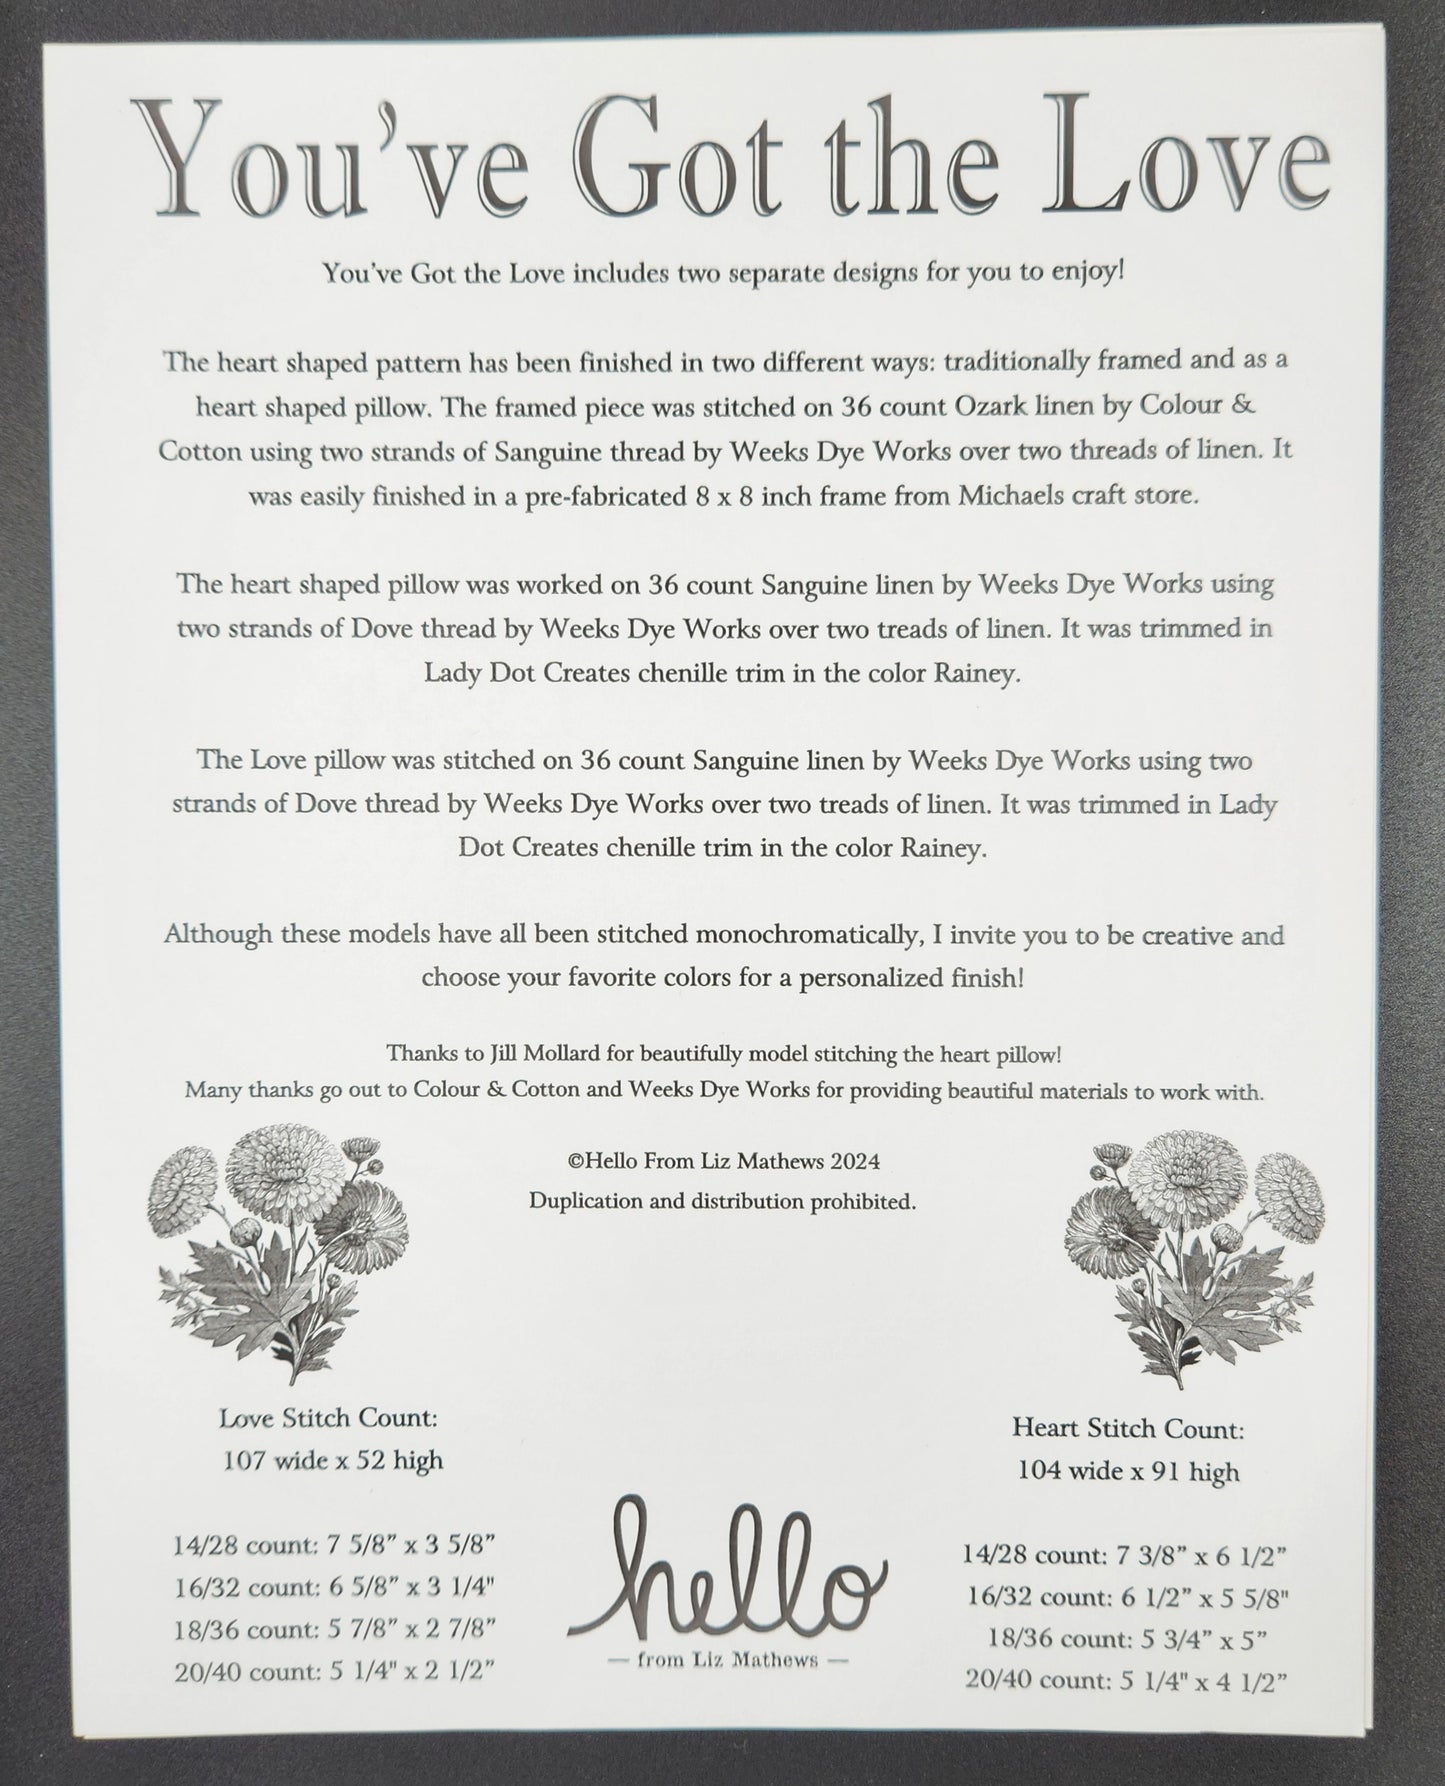 You've Got the Love
You've Got the Love includes two separate designs for you to enjoy!
The heart shaped pattern has been finished in two different ways: traditionally framed and as a
heart shaped pillow. The framed piece was stitched on 36 count Ozark linen by Colour &
Cotton using two strands of Sanguine thread by Weeks Dye Works over two threads of linen. It
was easily finished in a pre-fabricated 8 x 8 inch frame from Michaels craft store.
The heart shaped pillow was worked on 36 count Sanguine linen by Weeks Dye Works using
two strands of Dove thread by Weeks Dye Works over two treads of linen. It was trimmed in
Lady Dot Creates chenille trim in the color Rainey.
The Love pillow was stitched on 36 count Sanguine linen by Weeks Dye Works using two
strands of Dove thread by Weeks Dye Works over two treads of linen. It was trimmed in Lady
Dot Creates chenille trim in the color Rainey.
Although these models have all been stitched monochromatically, I invite you to be creative and
choose your favorite colors for a personalized finish!
Thanks to Jill Mollard for beautifully model stitching the heart pillow!
Many thanks go out to Colour & Cotton and Weeks Dye Works for providing beautiful materials to work with.
©Hello From Liz Mathews 2024
Duplication and distribution prohibited.
Love Stitch Count:
107 wide x 52 high
14/28 count: 7 5/8” x 3 5/8”
16/32 count: 6 5/8” x 3 1/4"
18/36 count: 5 7/8” x 2 7/8”
20/40 count: 5 1/4" x 2 1/2”
hello
— from Liz Mathews —
Heart Stitch Count:
104 wide x 91 high
14/28 count: 7 3/8” x 6 1/2”
16/32 count: 6 1/2” x 5 5/8"
18/36 count: 5 3/4” x 5”
20/40 count: 5 1/4" x 4 1/2”